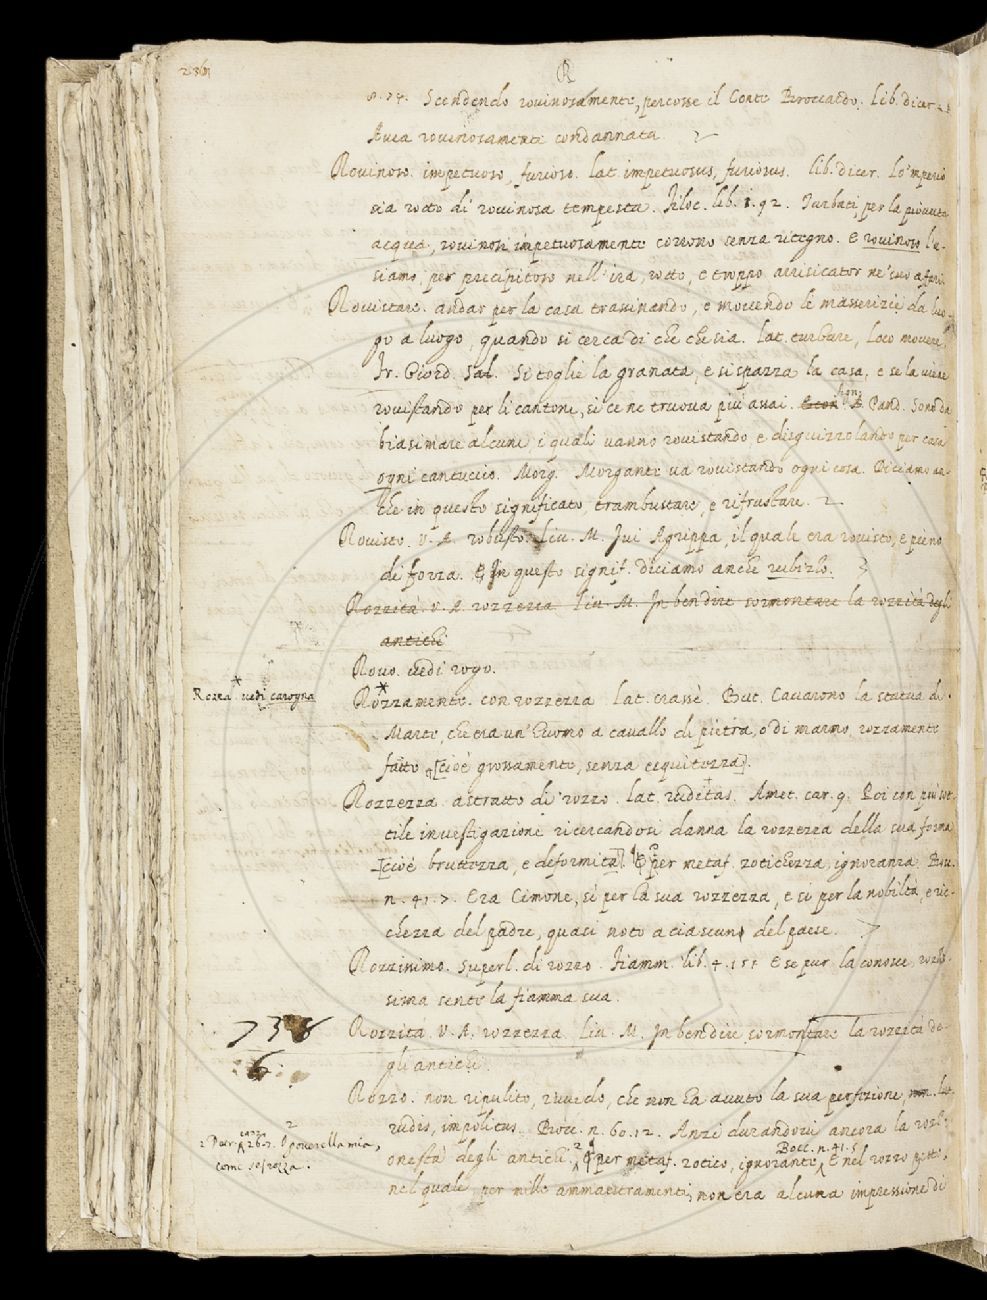 R
8. 74. Scendendo rovinosamente, percosse il Conte Broccardo. Lib. dicer.
Avea rovinosamente condannata.
Rovinoso. impetuoso, furioso. lat. impetuosus, furiosus. lib. dicer. Lo'mperio
sia rotto di rovinosa tempesta. Filoc. lib. 1. 92. Turbati, per la piovuta
acqua, rovinosi impetuosamente corrono senza ritegno. E rovinoso l'u-
siamo, per precipitoso nell'ira, rotto, e troppo arrisicator ne' suo affari.
Rovistare. andar per la casa trassinando, e movendo le masserizie da luo-
go a luogo, quando si cerca di che che sia. Lat. turbare, loco movere.
Fr. Giord. Sal. Si toglie la granata, e si spazza la casa, e se la viene
rovistando per li cantoni, si ce ne truova più assai. Pand. Sono da
biasimare alcuni, i quali vanno rovistando e disguizzolando per casa
ogni cantuccio. Morg. Morgante va rovistando ogni cosa. Diciamo an-
che in questo significato, trambustare, e rifrustare.
Rovisto. V. A. robusto. Liv. M. Fui Agrippa, il quale era rovisto, e pieno
di forza. E In questo signif. diciamo anche rubizzo.
Rozzità. V. A. rozzezza. Liv. M. In ben dire sormontare la rozzità degli
antichi
Rovo. vedi rogo.
Rozza vedi carogna
Rozzamente. con rozzezza. lat. crassè. But. Cavarono la statua di
Marte, che era un'huomo a cavallo di pietra, o di marmo, rozzamente
fatto [cioè grossamente, senza exquitezza].
Rozzezza. astratto di rozzo. lat. ruditas. Amet. car. 9. Poi con più sot-
tile investigazione ricercandosi danna la rozzezza della sua forma
[cioè bruttezza, e deformità]. E per metaf. zotichezza, ignoranza. Bocc.
n. 41. 7. Era Cimone, sì per la sua rozzezza, e sì per la nobiltà, e ric-
chezza del padre, quasi noto a ciascuno del paese.
Rozzissimo. superl. di rozzo. Fiamm. lib. 4. 155 E se pur la conosce, rozzis-
sima sente la fiamma sua.
Rozzità. V. A. rozzezza. Liv. M. In ben dire sormontare la rozzità de-
gli antichi.
738
6
Rozzo. non ripulito, ruvido, che non ha avuto la sua perfizione, lat.
rudis, impolitus. Bocc. n. 60. 12. Anzi durandovi ancora la rozza
onestà degli antichi. E per metaf. zotico, ignorante. Bocc. n. 41. 5 E nel rozzo petto,
nel quale per mille ammaestramenti, non era alcuna impressione di
2 Petr. canz. 26. 7. O poverella mia,
come se' rozza.